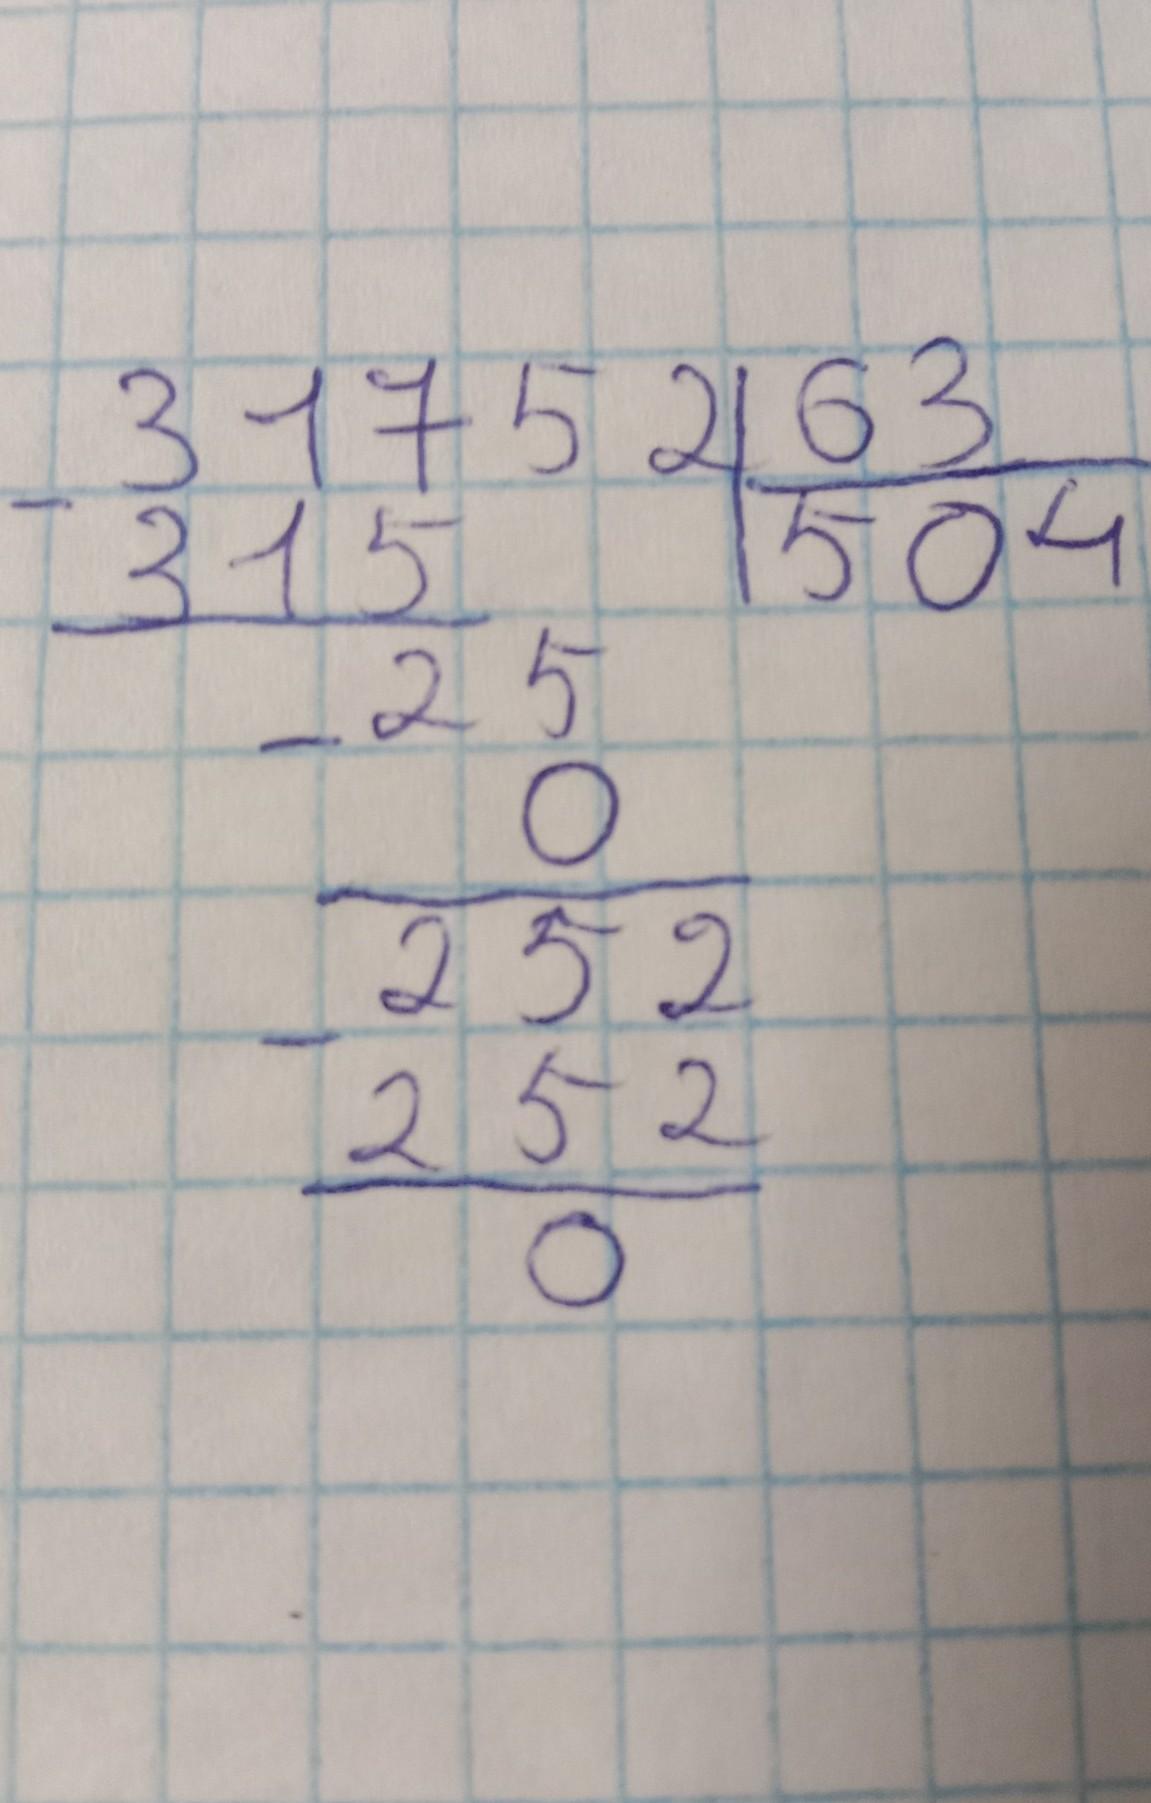 31752 63
- 315 504
- 25
0
252
- 252
0